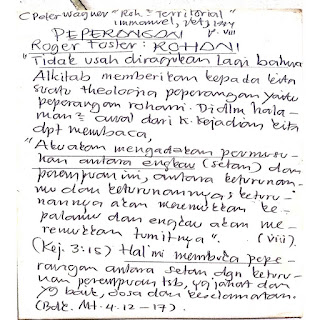 C Peter Wagner "Roh = Territorial"
immanuel, 
PEPERANGAN h. viii
Roger Foster: ROHANI
"Tidak usah diragukan lagi bahwa
Alkitab memberikan kepada kita
suatu theologia peperangan yaitu
peperangan rohani. Didlm hala-
man = awal dari K. Kejadian kita
dpt membaca,
"Aku akan mengadakan permusu-
han antara engkau (setan) dan
perempuan ini, antara keturunan-
mu dan keturunannya; keturu-
nannya akan meremukkan ke-
palamu dan engkau akan me-
remukkan tumitnya". (viii).
(Kej. 3:15) Hal ini membuka pepe-
rangan antara setan dgn keturu-
nan perempuan tsb, yg jahat dan
yg baik, dosa dan keselamatan.
(Bdk. Mt. 4.12-17).